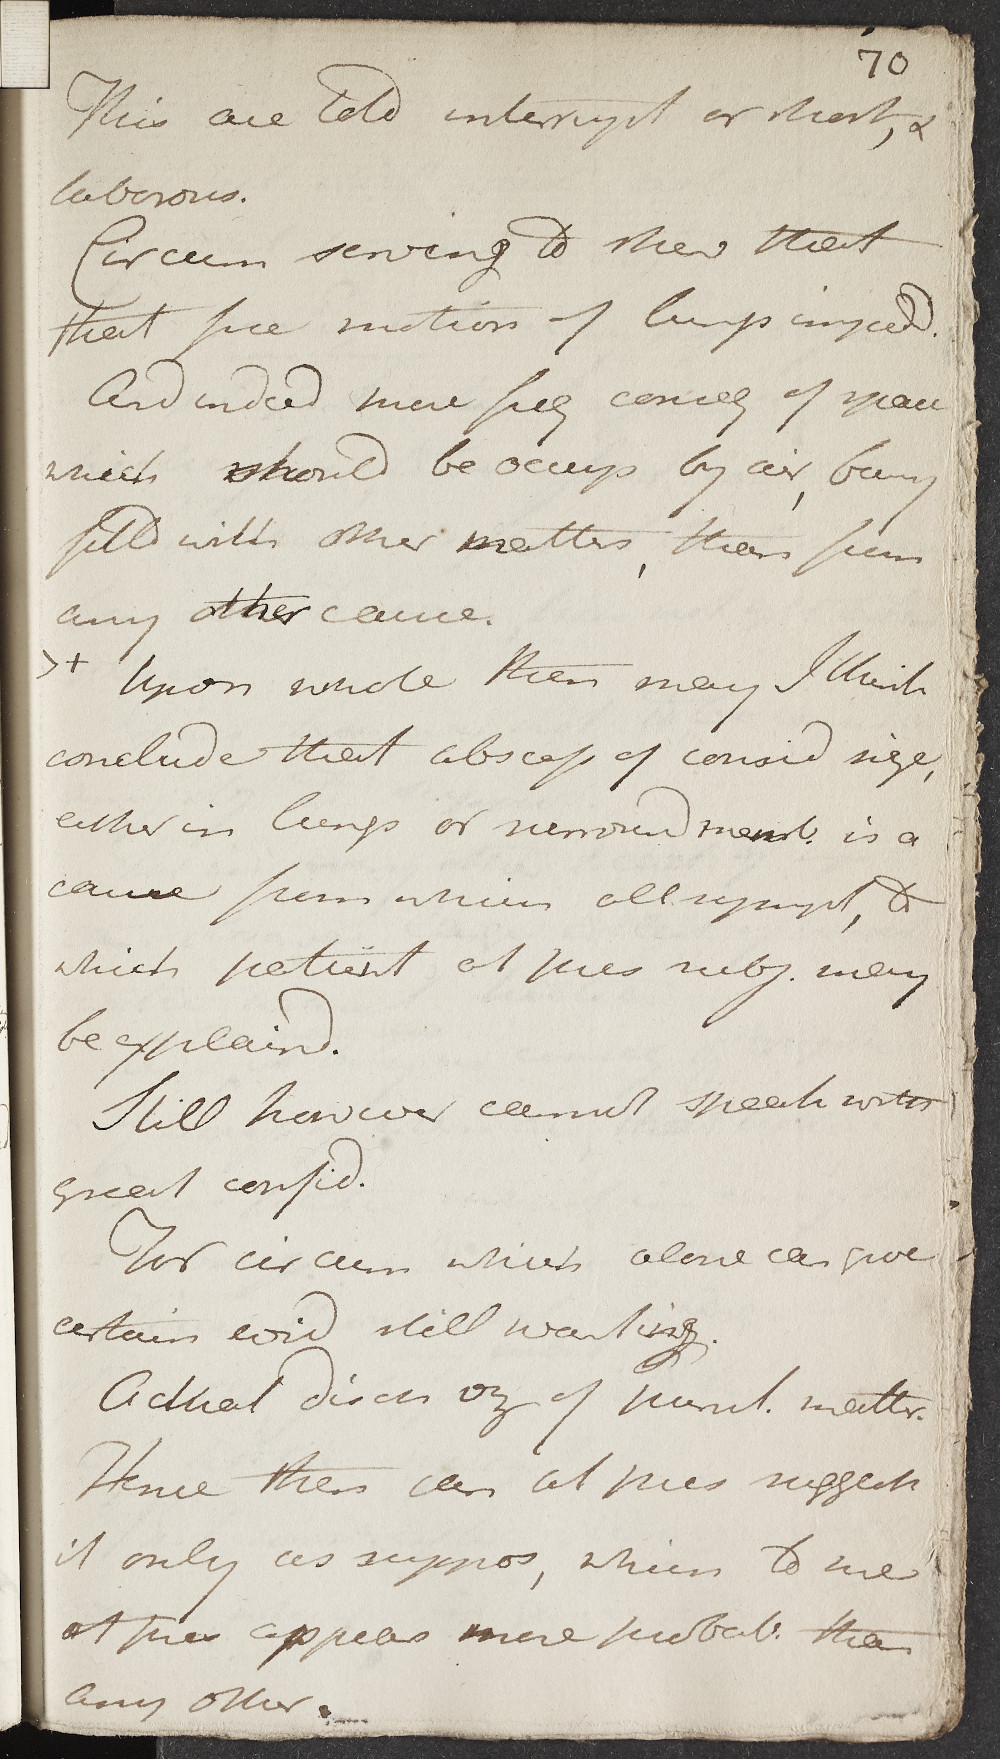 70
This are told interrupt or short, &
laborous.
Circum serving to shew that
that free motion of lungs imped.
And indeed more freq conseq of space
which should be occup by air, being
filld with other matters, than from
any other cause.
>+ Upon whole then may I think
conclude that abscess of consid size,
either in lungs or surround memb. is a
cause from which all sympt, to
which patient at pres subj. may
be explaind.
Still however cannot speak with
great confid.
For circum which alone can give
certain evid still wanting.
Actual disch of purul. matter.
Hence then can at pres suggest
it only as suppos, which to me
at pres appears more probab. than
any other.